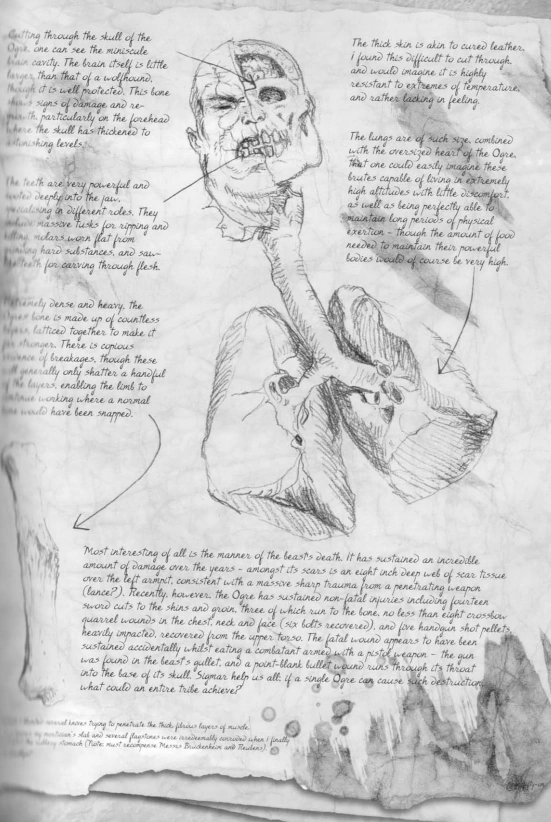 Cutting through the skull of the
Ogre, one can see the miniscule
brain cavity. The brain itself is little
larger than that of a wolfhound,
though it is well protected. This bone
shows signs of damage and re-
growth, particularly on the forehead
where the skull has thickened to
astonishing levels.
The teeth are very powerful and
rooted deeply into the jaw,
specialising in different roles. They
include massive tusks for ripping and
killing, molars worn flat from
grinding hard substances, and saw-
like teeth for carving through flesh.
Extremely dense and heavy, the
Ogre's bone is made up of countless
layers, latticed together to make it
far stronger. There is copious
evidence of breakages, though these
will generally only shatter a handful
of the layers, enabling the limb to
continue working where a normal
one would have been snapped.
The thick skin is akin to cured leather.
I found this difficult to cut through,
and would imagine it is highly
resistant to extremes of temperature,
and rather lacking in feeling.
The lungs are of such size, combined
with the oversized heart of the Ogre,
that one could easily imagine these
brutes capable of living in extremely
high altitudes with little discomfort,
as well as being perfectly able to
maintain long periods of physical
exertion - though the amount of food
needed to maintain their powerful
bodies would of course be very high.
'Most interesting of all is the manner of the beast's death. It has sustained an incredible
amount of damage over the years - amongst its scars is an eight inch deep web of scar tissue
over the left armpit, consistent with a massive sharp trauma from a penetrating weapon
(lance?). Recently, however, the Ogre has sustained non-fatal injuries including fourteen
sword cuts to the shins and groin, three of which run to the bone, no less than eight crossbow
quarrel wounds in the chest, neck and face (six bolts recovered), and five handgun shot pellets,
heavily impacted, recovered from the upper torso. The fatal wound appears to have been
sustained accidentally whilst eating a combatant armed with a pistol weapon - the gun
was found in the beast's gullet, and a point-blank bullet wound runs through its throat
into the base of its skull. Sigmar help us all; if a single Ogre can cause such destruction,
what could an entire tribe achieve?'
several knives trying to penetrate the thick fibrous layers of muscle.
mortician's slab and several flagstones were irredeemably corroded when I finally
stomach (Note: must recompense Messrs Brückenheim and Reulens).